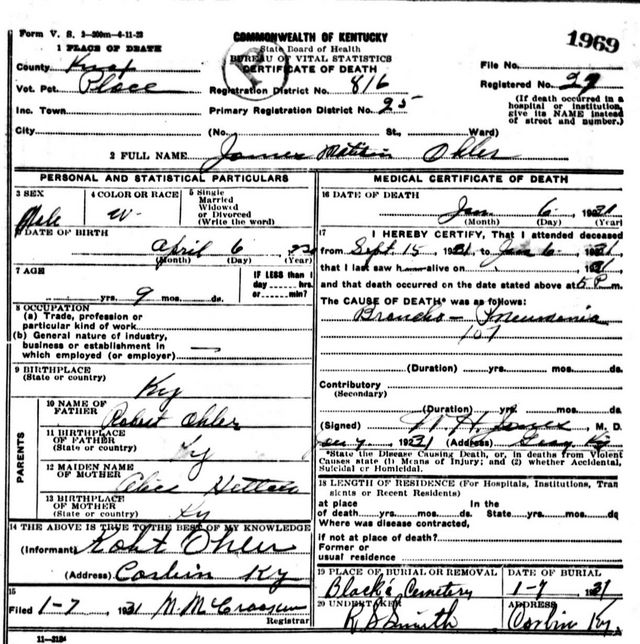 Form V. S. 3—200m—4-11-23
COMMONWEALTH OF KENTUCKY
State Board of Health
BUREAU OF VITAL STATISTICS
CERTIFICATE OF DEATH
1969
1 PLACE OF DEATH
County Knox
Vot. Pct. Place
Inc. Town
City (No. St., Ward)
Registration District No. 816
Primary Registration District No. 25
File No.
Registered No. 29
(If death occurred in a hospital or institution, give its NAME instead of street and number.)
2 FULL NAME James Ohler
PERSONAL AND STATISTICAL PARTICULARS
3 SEX
Male
4 COLOR OR RACE
W
5 Single
Married
Widowed
or Divorced
(Write the word)
6 DATE OF BIRTH
April 6
(Month) (Day) (Year)
7 AGE
yrs. 9 mos. ds.
IF LESS than 1
day hrs.
or min?
8 OCCUPATION
(a) Trade, profession or
particular kind of work
(b) General nature of industry,
business or establishment in
which employed (or employer)
9 BIRTHPLACE
(State or country)
Ky
PARENTS
10 NAME OF
FATHER
Robert Ohler
11 BIRTHPLACE
OF FATHER
(State or country)
Ky
12 MAIDEN NAME
OF MOTHER
Alice
13 BIRTHPLACE
OF MOTHER
(State or country)
Ky
14 THE ABOVE IS TRUE TO THE BEST OF MY KNOWLEDGE
(Informant) Robt Ohler
(Address) Corbin Ky
15
Filed 1-7, 1931
Registrar
11—3184
MEDICAL CERTIFICATE OF DEATH
16 DATE OF DEATH
Jan 6, 1931
(Month) (Day) (Year)
17 I HEREBY CERTIFY, That I attended deceased
from Sept 15 1931, to Jan 6, 1931,
that I last saw h alive on , 1931
and that death occurred on the date stated above at 5 P m.
The CAUSE OF DEATH* was as follows:
Broncho-Pneumonia
107
(Duration) yrs. mos. ds.
Contributory
(Secondary)
(Duration) yrs. mos. ds.
(Signed) , M. D.
Jan 7, 1931 (Address) Gray Ky
*State the Disease Causing Death, or, in deaths from Violent
Causes state (1) Means of Injury; and (2) whether Accidental,
Suicidal or Homicidal.
18 LENGTH OF RESIDENCE (For Hospitals, Institutions, Tran
sients or Recent Residents)
at place In the
of death yrs. mos. ds. State yrs. mos. ds
Where was disease contracted,
if not at place of death?
Former or
usual residence
19 PLACE OF BURIAL OR REMOVAL
Cemetery
DATE OF BURIAL
1-7 1931
20 UNDERTAKER
Smith
ADDRESS
Corbin Ky.